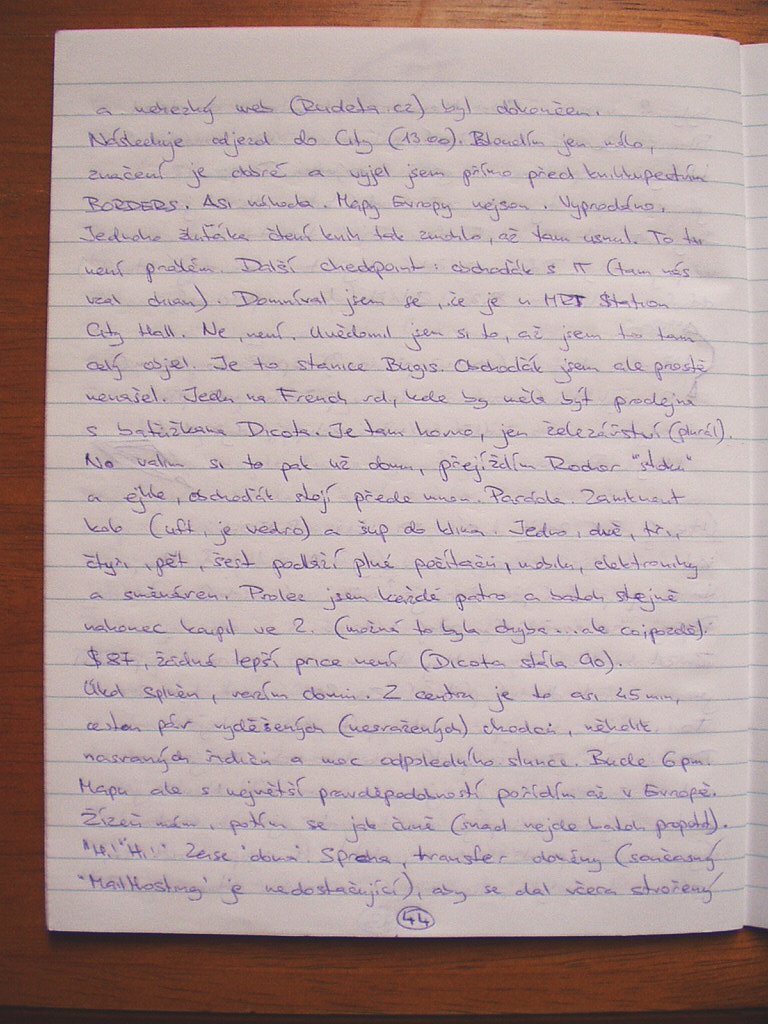 a nehezký web (Rudeta.cz) byl dokončen.
Následuje odjezd do City (13:00). Bloudím jen málo,
značení je dobré a vyjel jsem přímo před knihkupectvím
BORDERS. Asi náhoda. Mapy Evropy nejsou. Vyprodáno.
Jednoho žuťáka čtení knih tak zmohlo, až tam usnul. To tu
není problém. Další checkpoint: obchoďák s IT (tam nás
vzal). Domníval jsem se, že je u MRT Station
City Hall. Ne, není. Uvědomil jsem si to, až jsem to tam
celý objel. Je to stanice Bugis. Obchoďák jsem ale prostě
nenašel. Jedu na French rd, kde by měla být prodejna
s batůžkama Dicota. Je tam hovno, jen železářství (plurál).
No valím si to pak už domu, přejíždím Rochor
a ejhle, obchoďák stojí přede mnou. Paráda. Zamknout
kolo (uff, je vedro) a šup do klima. Jedno, dvě, tři,
čtyři, pět, šest podlaží plné počítačů, mobilu, elektroniky
a směnáren. Prolez jsem každé patro a batoh stejně
nakonec koupil ve 2. (možná to byla chyba...ale co, pozdě).
$87, žádná lepší price není (Dicota stála 90).
Úkol splněn, vezím domu. Z centra je to asi 45 min,
cestou pár vyděšených (nesražených) chodců, několik
nasraných řidičů a moc odpoledního slunce. Bude 6 pm.
Mapu ale s největší pravděpodobností pořídím až v Evropě.
Žízeň mám, potím se jak čuně (snad nejde batoh propotit).
"Hi!" "Hi!" Zase "doma". Sprcha, transfer domény (současný
"MailHosting" je nedostačující), aby se dal včera stvořený
44